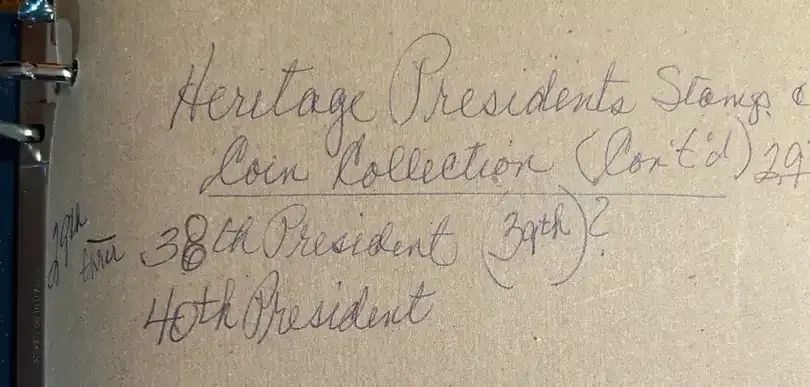 Heritage Presidents Stamp &
Coin Collection (Con't'd) 29
29th thru 38th President (39th)?
40th President